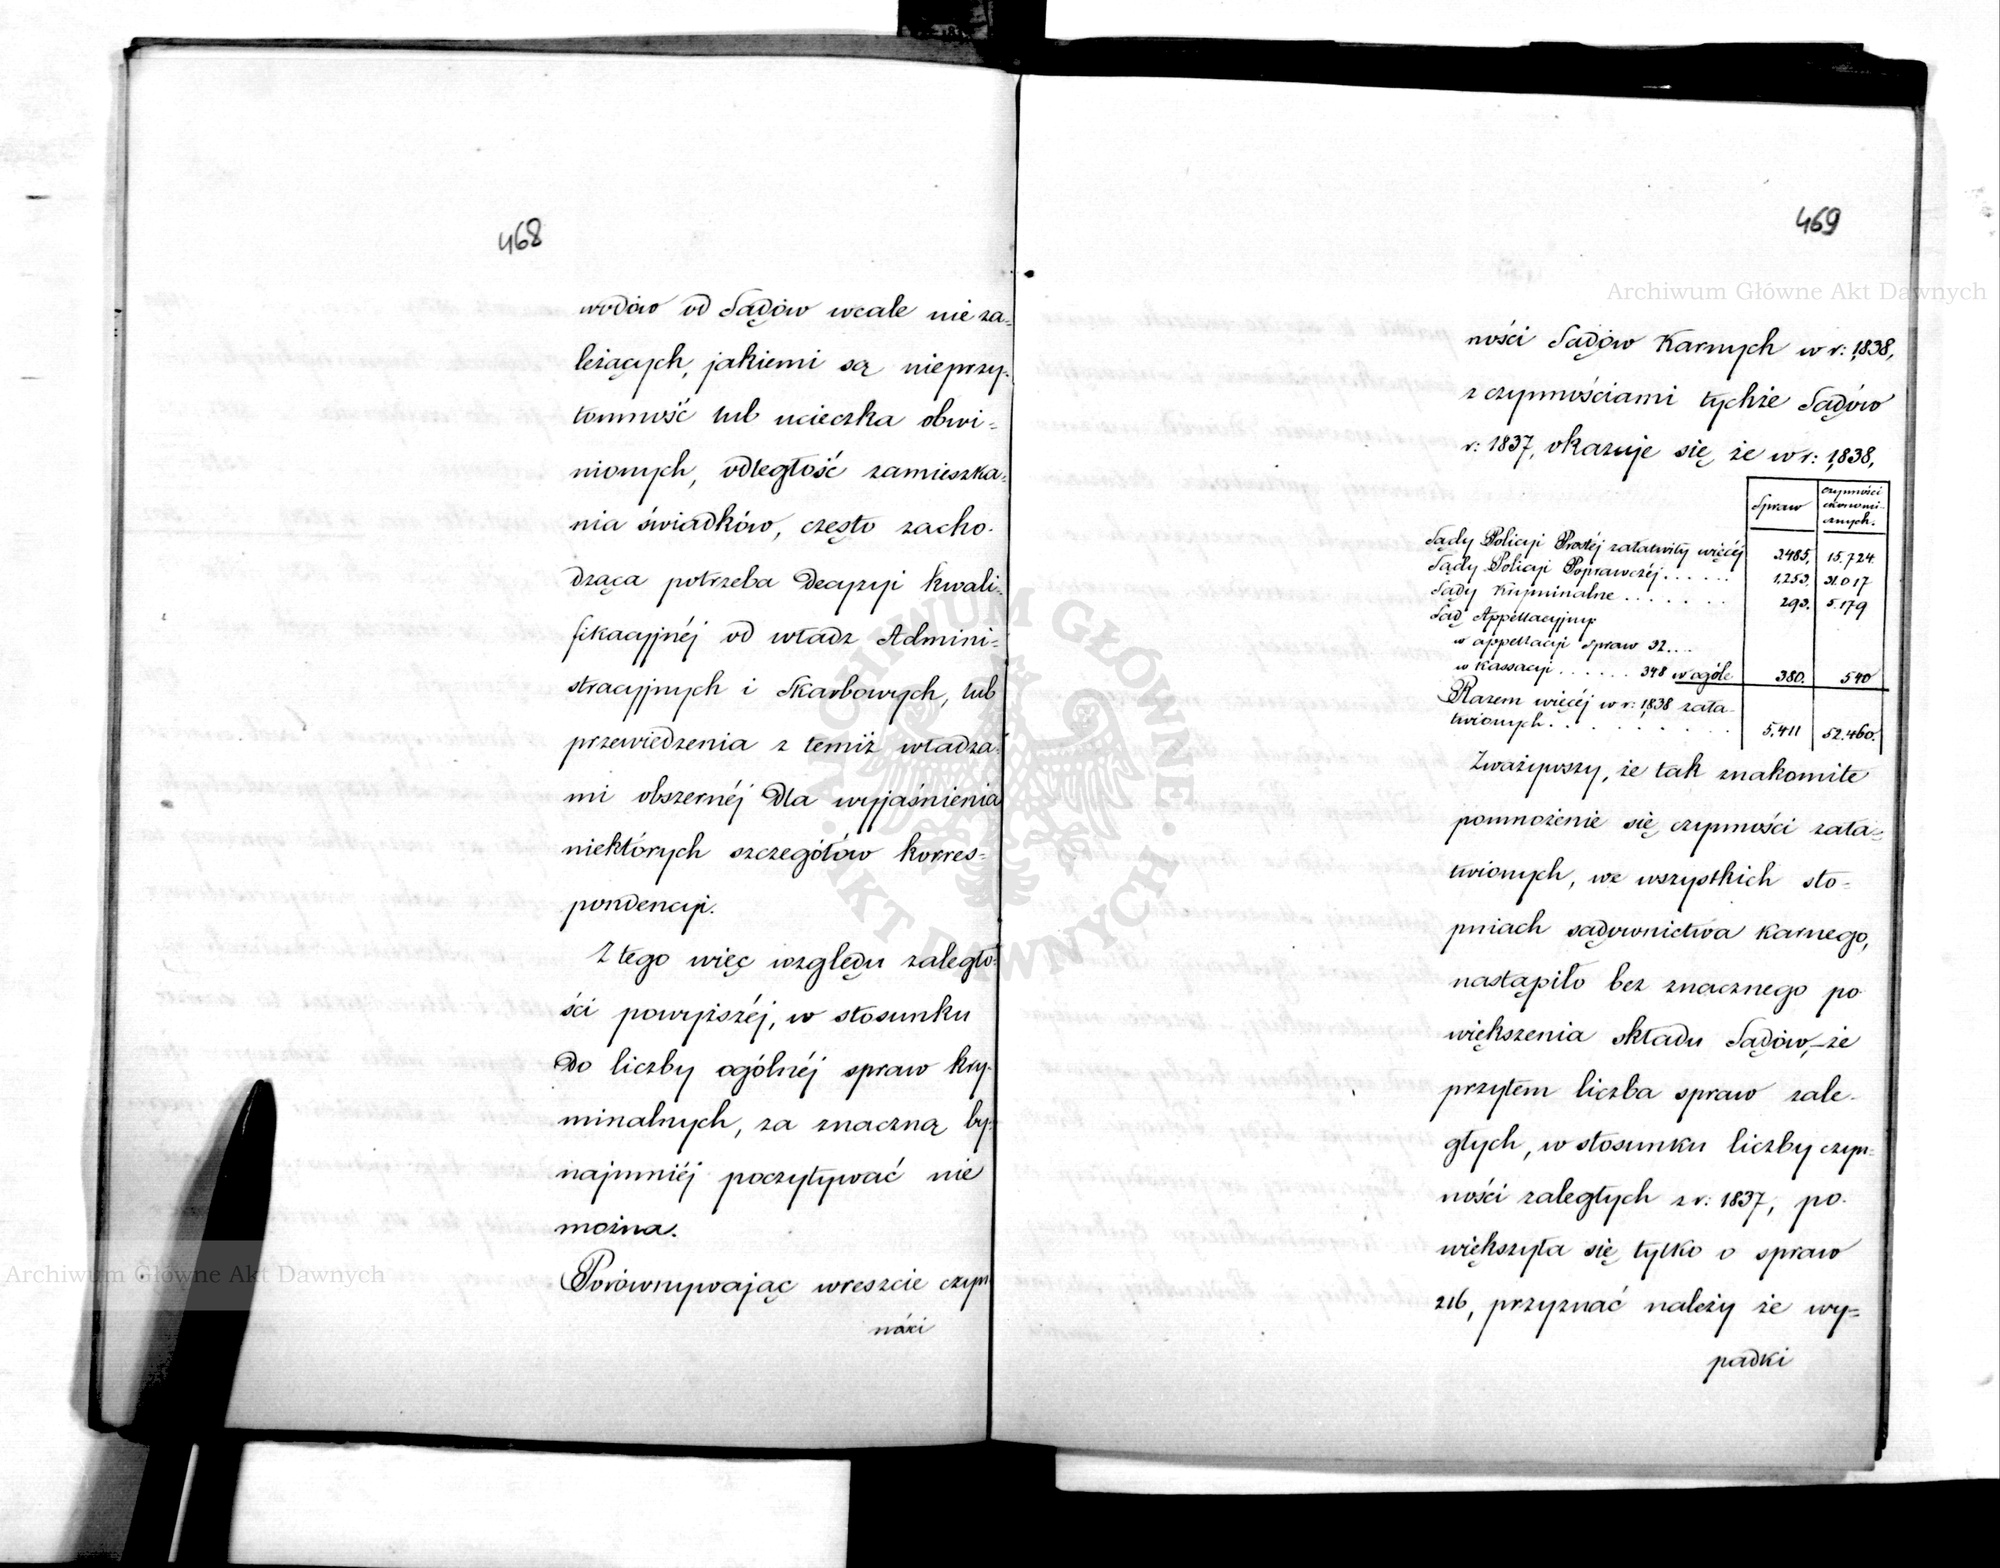 468
wodów od Sądów wcale nie za-
leżących, jakiemi są nieprzy-
tomność lub ucieczka obwi-
nionych, odległość zamieszka-
nia świadków, często zacho-
dząca potrzeba Decyzyi kwali-
fikacyjnéj od władz Admini-
stracyjnych i Skarbowych, lub
przewiedzenia z temiż władza-
mi obszernéj dla wyjaśnienia
niektórych szczegółów korres-
pondencyi.
Z tego więc względu zaległo-
ści powyższéj, w stosunku
do liczby ogólnéj spraw kry-
minalnych, za znaczną by-
najmniéj poczytywać nie
można.
Porównywając wreszcie czyn
ności
469
ności Sądów Karnych w r: 1838,
z czynnościami tychże Sądów
r: 1837, okazuje się, że w r: 1838,
Spraw czynności ekonomi-cznych.
Sądy Policyi Prostéj załatwiły więcéj 3485, 15.724.
Sądy Policyi Poprawczéj...... 1,253. 31.017
Sądy Kryminalne....... 293. 5.179
Sąd Appellacyjny:
w appellacyi spraw 32...
w kassacyi...... 348 w ogóle 380. 540
Razem więcéj w r: 1838 zała-
twionych.......... 5,411 52.460.
Zważywszy, że tak znakomite
pomnożenie się czynności zała-
twionych, we wszystkich sto-
pniach sądownictwa karnego,
nastąpiło bez znacznego po
większenia składu Sądów,-że
przytem liczba spraw zale-
głych, w stosunku liczby czyn-
ności zaległych z r: 1837, po-
większyła się tylko o spraw
216, przyznać należy że wy-
padki
Archiwum Główne Akt Dawnych
Archiwum Główne Akt Dawnych
ARCHIWUM GŁÓWNE · AKT DAWNYCH ·